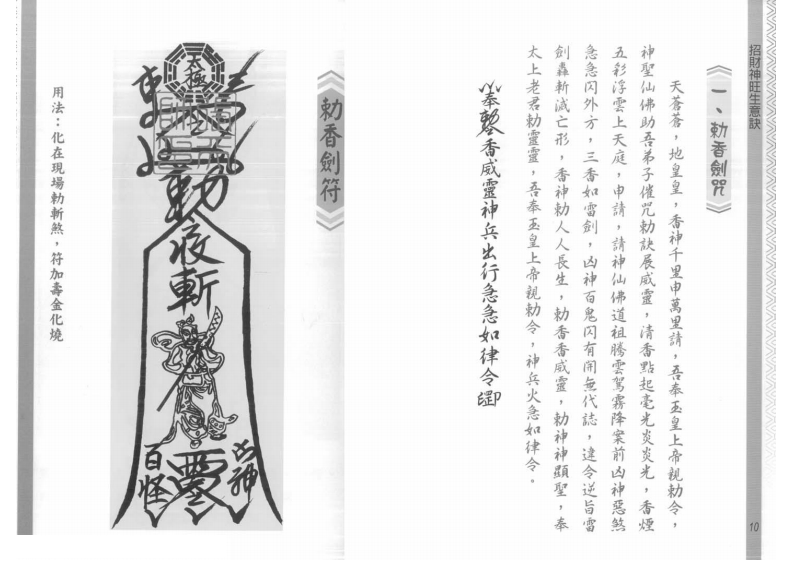 招財神旺生意訣
一、勅香劍咒
天蒼蒼，地皇皇，香神千里申萬里請，吾奉玉皇上帝親勅令，
神聖仙佛助吾弟子催咒勅訣展威靈，清香點起毫光炎炎光，香煙
五彩浮雲上天庭，申請，請神仙佛道祖騰雲駕霧降案前凶神惡煞
急急閃外方，三香如雷劍，凶神百鬼閃有開無代誌，違令逆旨雷
劍轟斬滅亡形，香神勅人人長生，勅香香威靈，勅神神顯聖，奉
太上老君勅靈靈，吾奉玉皇上帝親勅令，神兵火急如律令。
奉香威靈神兵出行急急如律令
10
勅香劍符
太極
勅
斬
凶神
百怪
用法：化在現場勅斬煞，符加壽金化燒